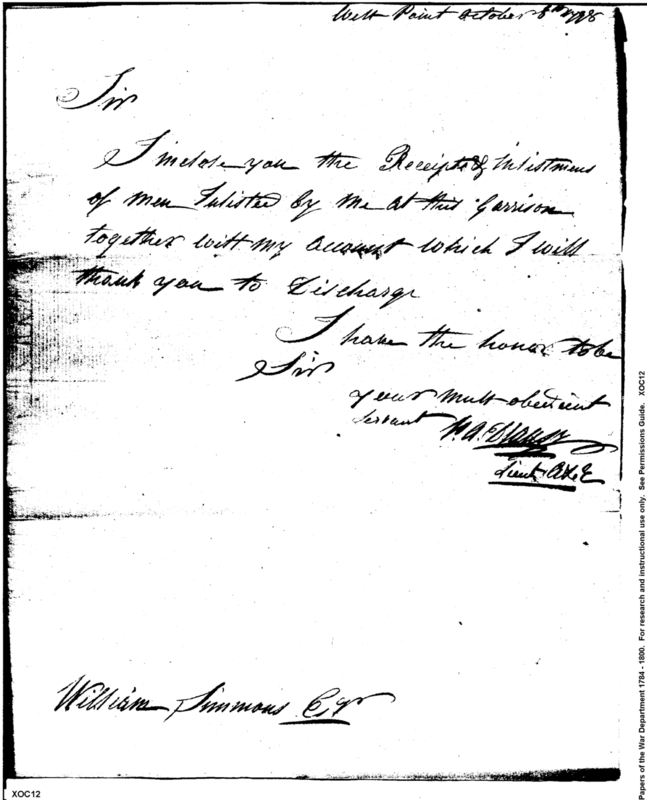 West Point October 8th 1798
Sir
I inclose you the Receipts & Inlistments
of men Inlisted by me at this Garrison
together with my account which I will
thank you to Discharge
I have the honor to be
Sir
your most obedient
Servant
Lieut A & E
William Simmons Esqr
XOC12
Papers of the War Department 1784 - 1800. For research and instructional use only. See Permissions Guide. XOC12